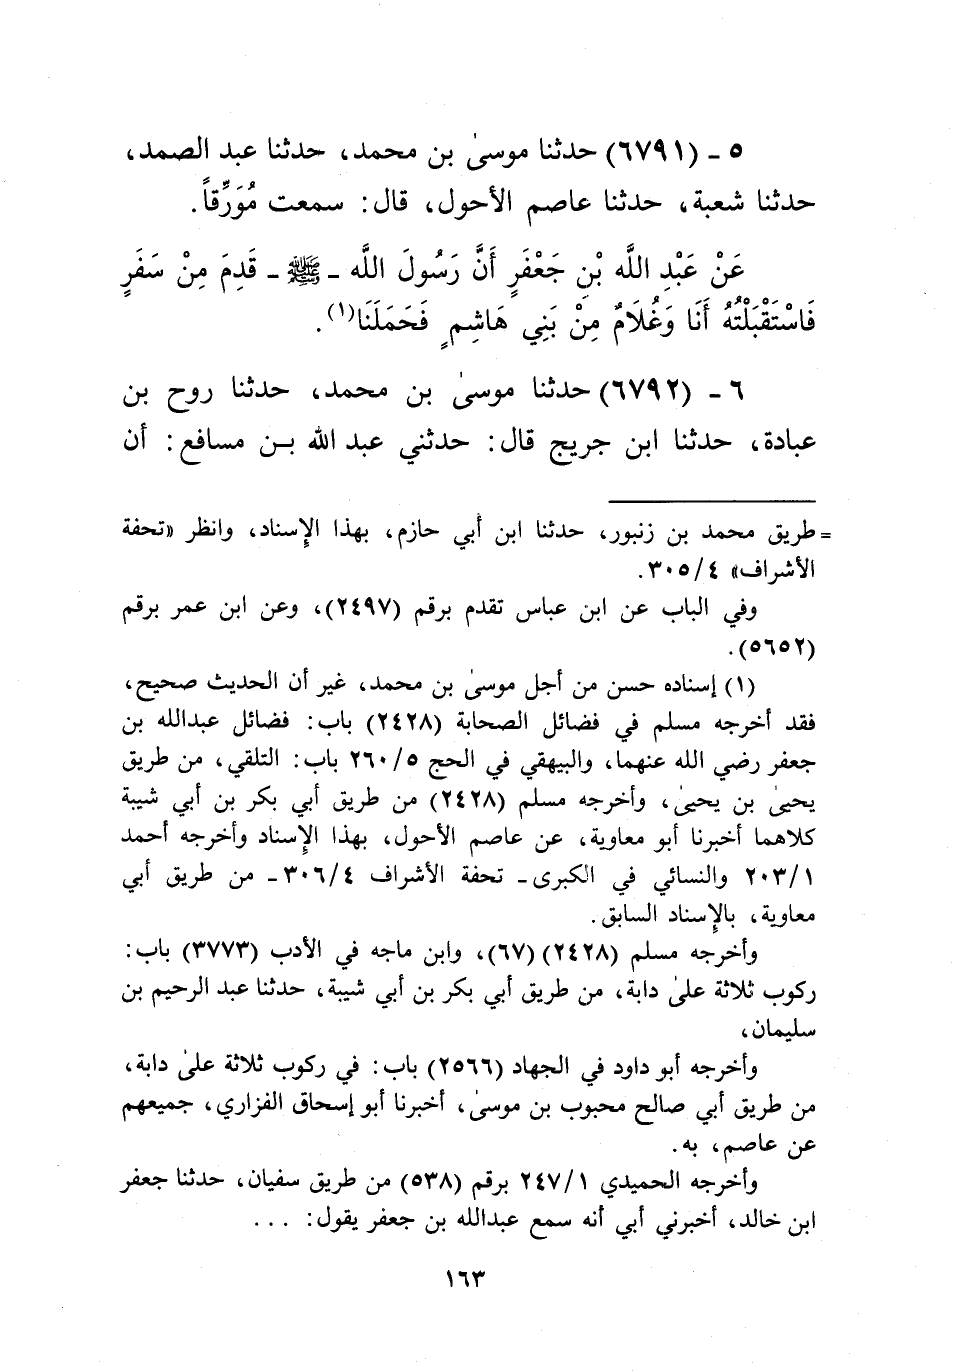 ٥ ـ (٦٧٩١) حدثنا موسىٰ بن محمد، حدثنا عبد الصمد،
حدثنا شعبة، حدثنا عاصم الأحول، قال: سمعت مُوَرِّقاً.
عَنْ عَبْدِ اللَّه بْنِ جَعْفَرٍ أَنَّ رَسُولَ اللَّه ـ ﷺ ـ قَدِمَ مِنْ سَفَرٍ
فَاسْتَقْبَلْتُهُ أَنَا وَغُلَامٌ مِنْ بَنِي هَاشِمٍ فَحَمَلَنَا(١).
٦ ـ (٦٧٩٢) حدثنا موسىٰ بن محمد، حدثنا روح بن
عبادة، حدثنا ابن جريج قال: حدثني عبد الله بـن مسافع: أن
= طريق محمد بن زنبور، حدثنا ابن أبي حازم، بهذا الإسناد، وانظر «تحفة
الأشراف» ٣٠٥/٤.
وفي الباب عن ابن عباس تقدم برقم (٢٤٩٧)، وعن ابن عمر برقم
(٥٦٥٢).
(١) إسناده حسن من أجل موسىٰ بن محمد، غير أن الحديث صحيح،
فقد أخرجه مسلم في فضائل الصحابة (٢٤٢٨) باب: فضائل عبدالله بن
جعفر رضي الله عنهما، والبيهقي في الحج ٢٦٠/٥ باب: التلقي، من طريق
يحيىٰ بن يحيىٰ، وأخرجه مسلم (٢٤٢٨) من طريق أبي بكر بن أبي شيبة
كلاهما أخبرنا أبو معاوية، عن عاصم الأحول، بهذا الإسناد وأخرجه أحمد
٢٠٣/١ والنسائي في الكبرى ـ تحفة الأشراف ٣٠٦/٤ ـ من طريق أبي
معاوية، بالإسناد السابق.
وأخرجه مسلم (٢٤٢٨) (٦٧)، وابن ماجه في الأدب (٣٧٧٣) باب:
ركوب ثلاثة علىٰ دابة، من طريق أبي بكر بن أبي شيبة، حدثنا عبد الرحيم بن
سليمان،
وأخرجه أبو داود في الجهاد (٢٥٦٦) باب: في ركوب ثلاثة علىٰ دابة،
من طريق أبي صالح محبوب بن موسىٰ، أخبرنا أبو إسحاق الفزاري، جميعهم
عن عاصم، به.
وأخرجه الحميدي ٢٤٧/١ برقم (٥٣٨) من طريق سفيان، حدثنا جعفر
ابن خالد، أخبرني أبي أنه سمع عبدالله بن جعفر يقول: ...
١٦٣